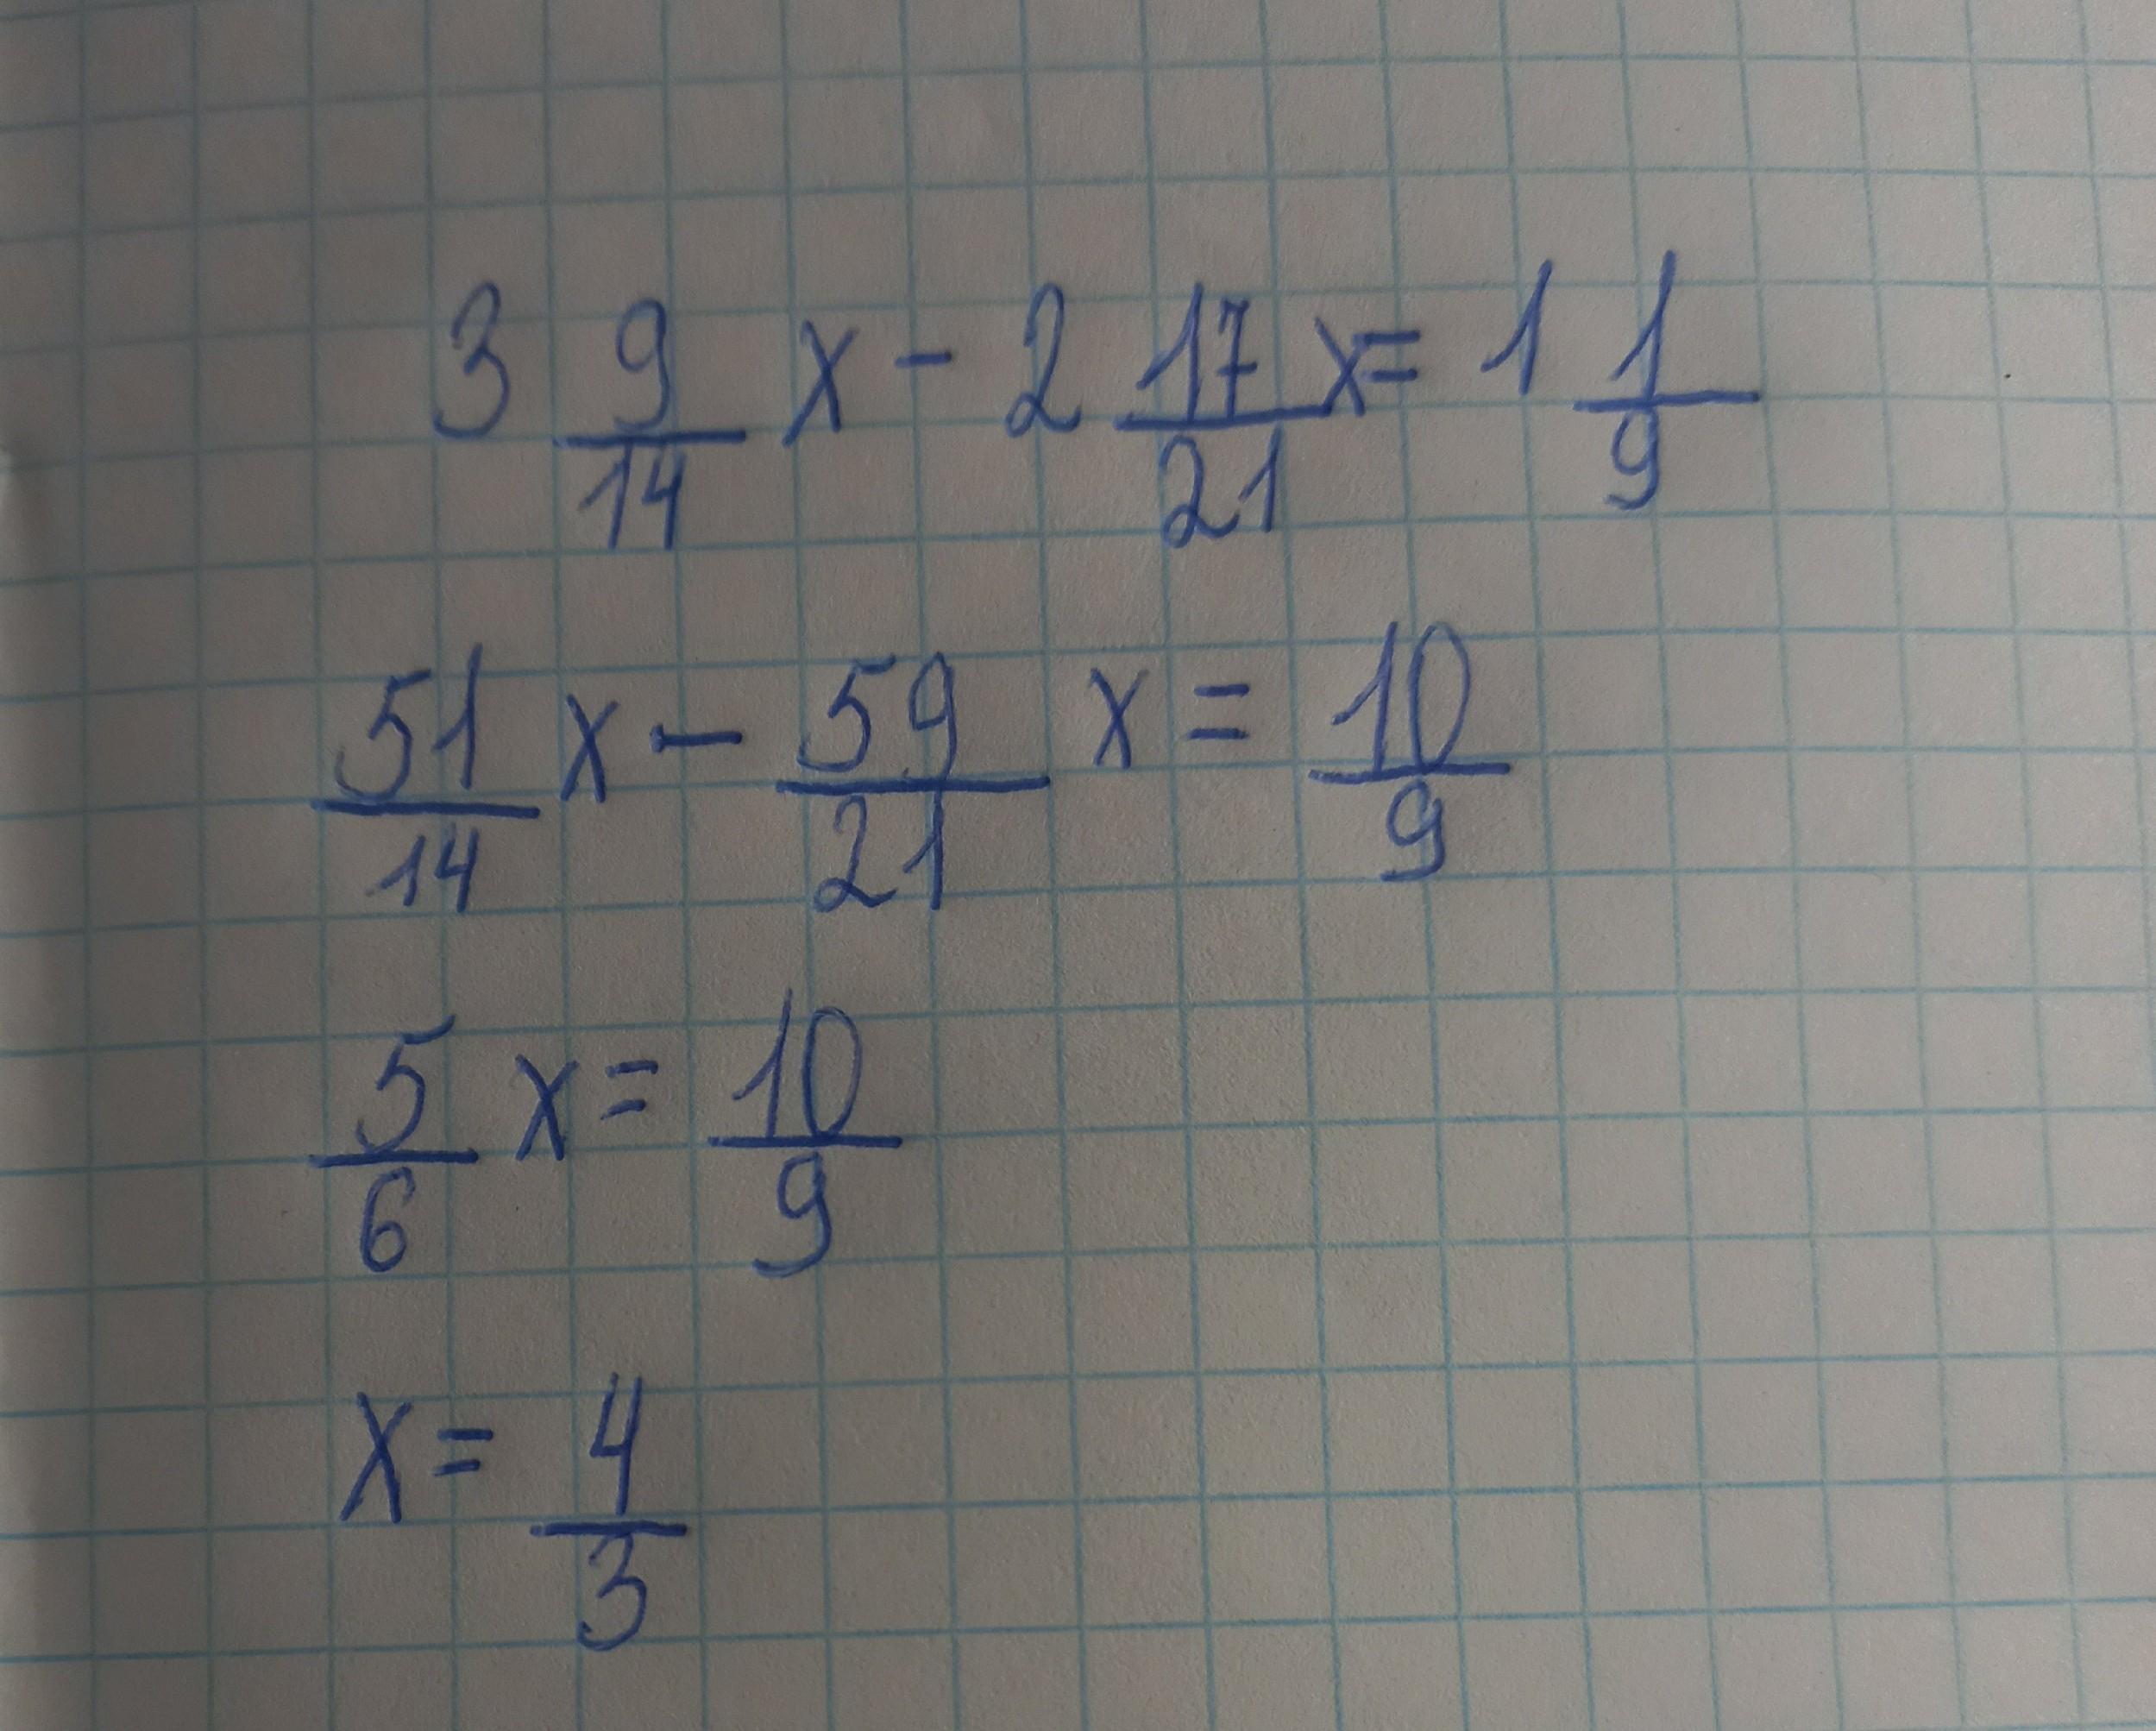 3 9/14 x - 2 17/21 x = 1 1/9
51/14 x - 59/21 x = 10/9
5/6 x = 10/9
x = 4/3